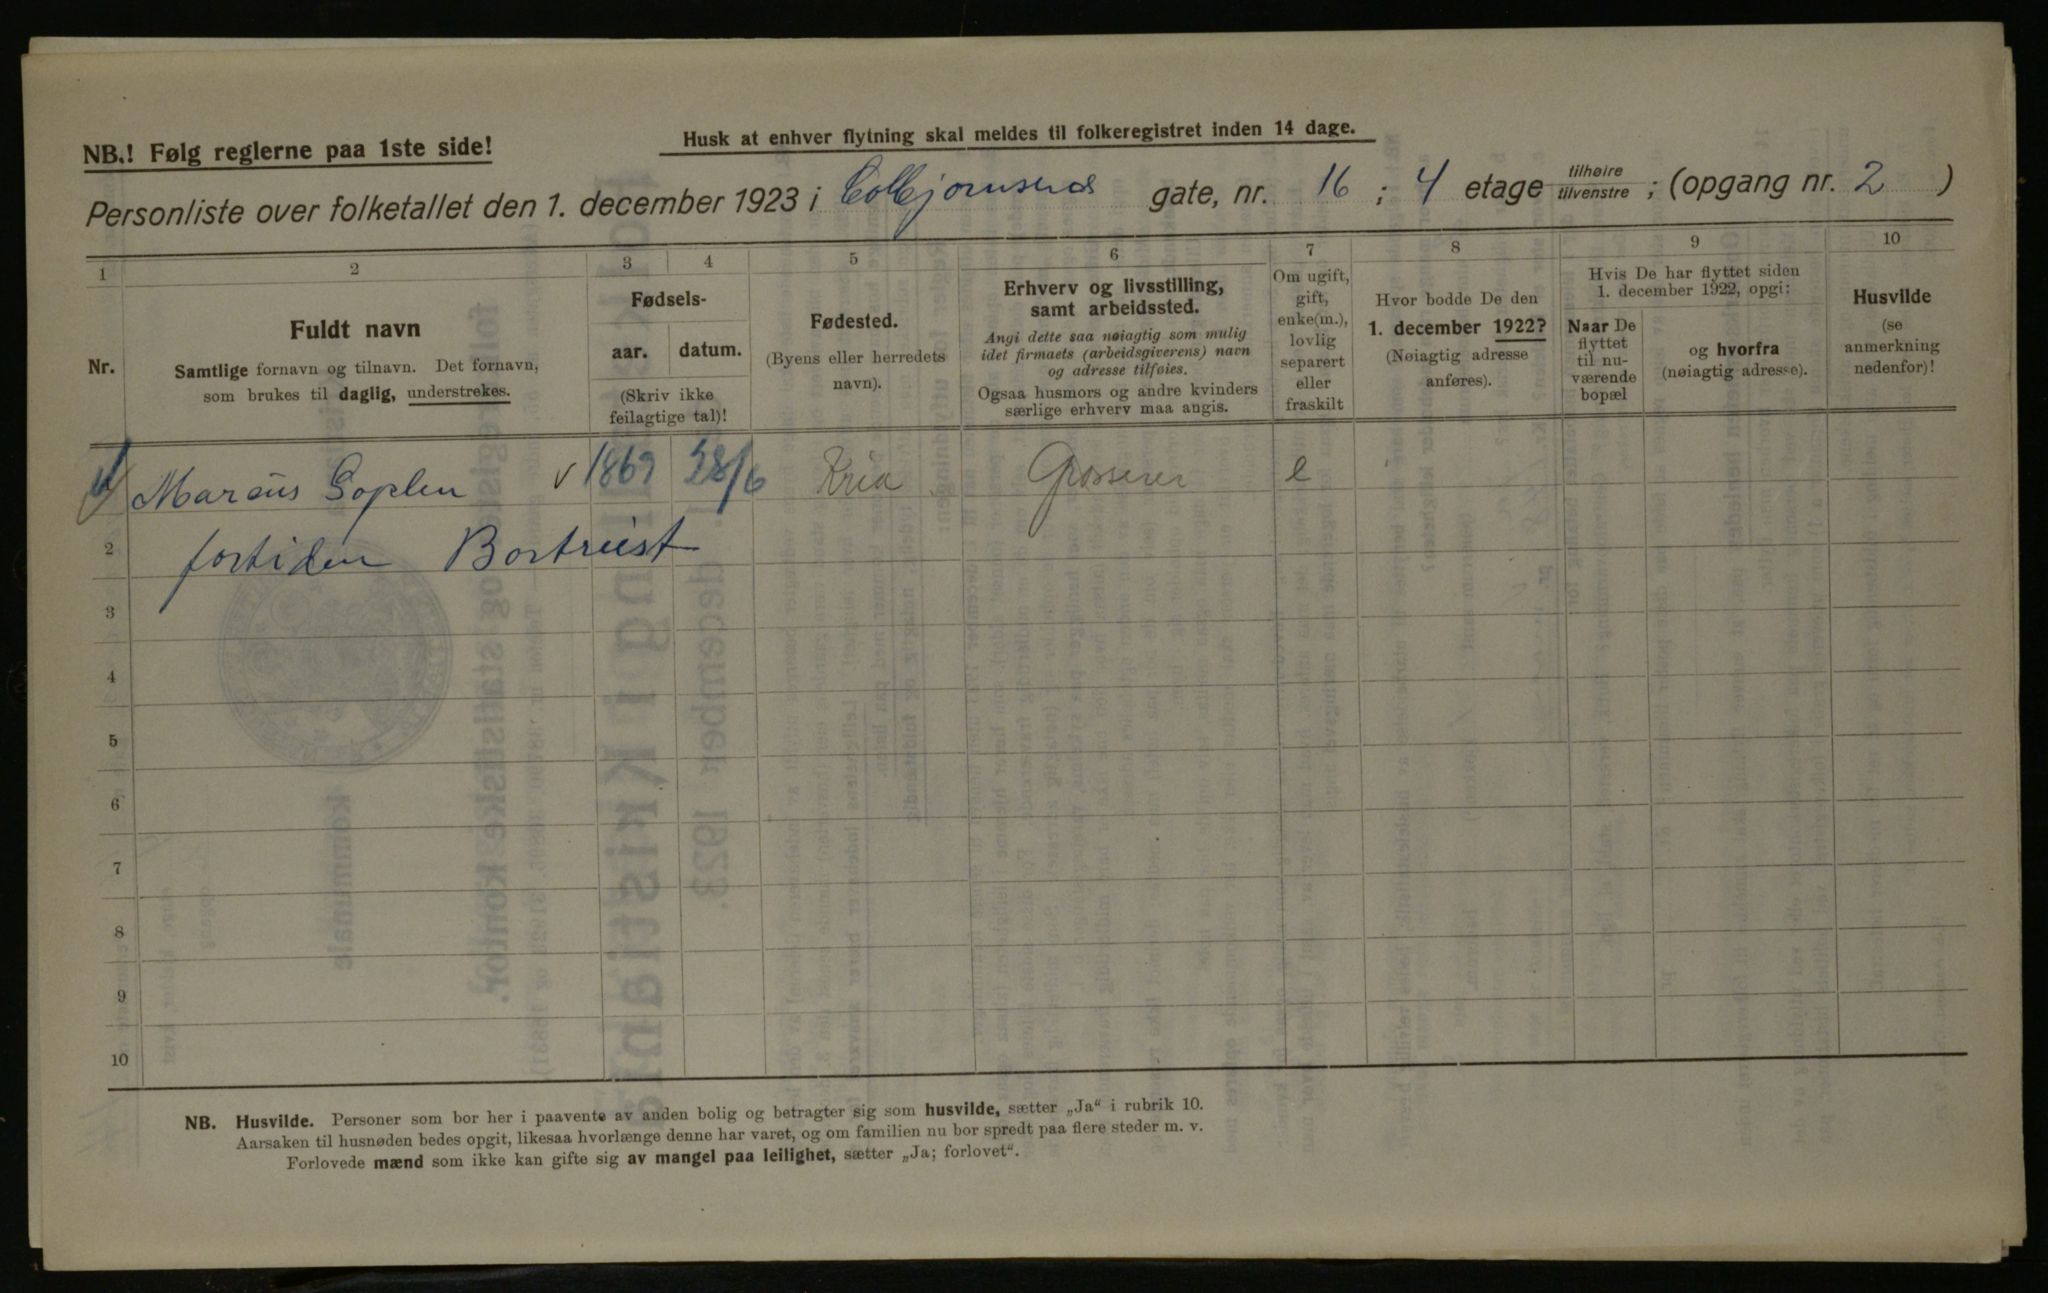 NB.! Følg reglerne paa 1ste side!
Husk at enhver flytning skal meldes til folkeregistret inden 14 dage.
Personliste over folketallet den 1. december 1923 i Colbjørnsens gate, nr. 16 ; 4 etage tilhøire tilvenstre ; (opgang nr. 2 )
1 2 3 4 5 6 7 8 9 10
Nr.
Fuldt navn
Samtlige fornavn og tilnavn. Det fornavn,
som brukes til daglig, understrekes.
Fødsels-
aar. datum.
(Skriv ikke
feilagtige tal)!
Fødested.
(Byens eller herredets
navn).
Erhverv og livsstilling,
samt arbeidssted.
Angi dette saa nøiagtig som mulig
idet firmaets (arbeidsgiverens) navn
og adresse tilføies.
Ogsaa husmors og andre kvinders
særlige erhverv maa angis.
Om ugift,
gift,
enke(m.),
lovlig
separert
eller
fraskilt
Hvor bodde De den
1. december 1922?
(Nøiagtig adresse
anføres).
Hvis De har flyttet siden
1. december 1922, opgi:
Naar De
flyttet
til nu-
værende
bopæl
og hvorfra
(nøiagtig adresse).
Husvilde
(se
anmerkning
nedenfor)!
1 Marcus Soplen v 1869 28/6 Kria Grosserer e
2 fortiden Bortreist
3
4
5
6
7
8
9
10
NB. Husvilde. Personer som bor her i paavente av anden bolig og betragter sig som husvilde, sætter „Ja“ i rubrik 10.
Aarsaken til husnøden bedes opgit, likesaa hvorlænge denne har varet, og om familien nu bor spredt paa flere steder m. v.
Forlovede mænd som ikke kan gifte sig av mangel paa leilighet, sætter „Ja; forlovet“.